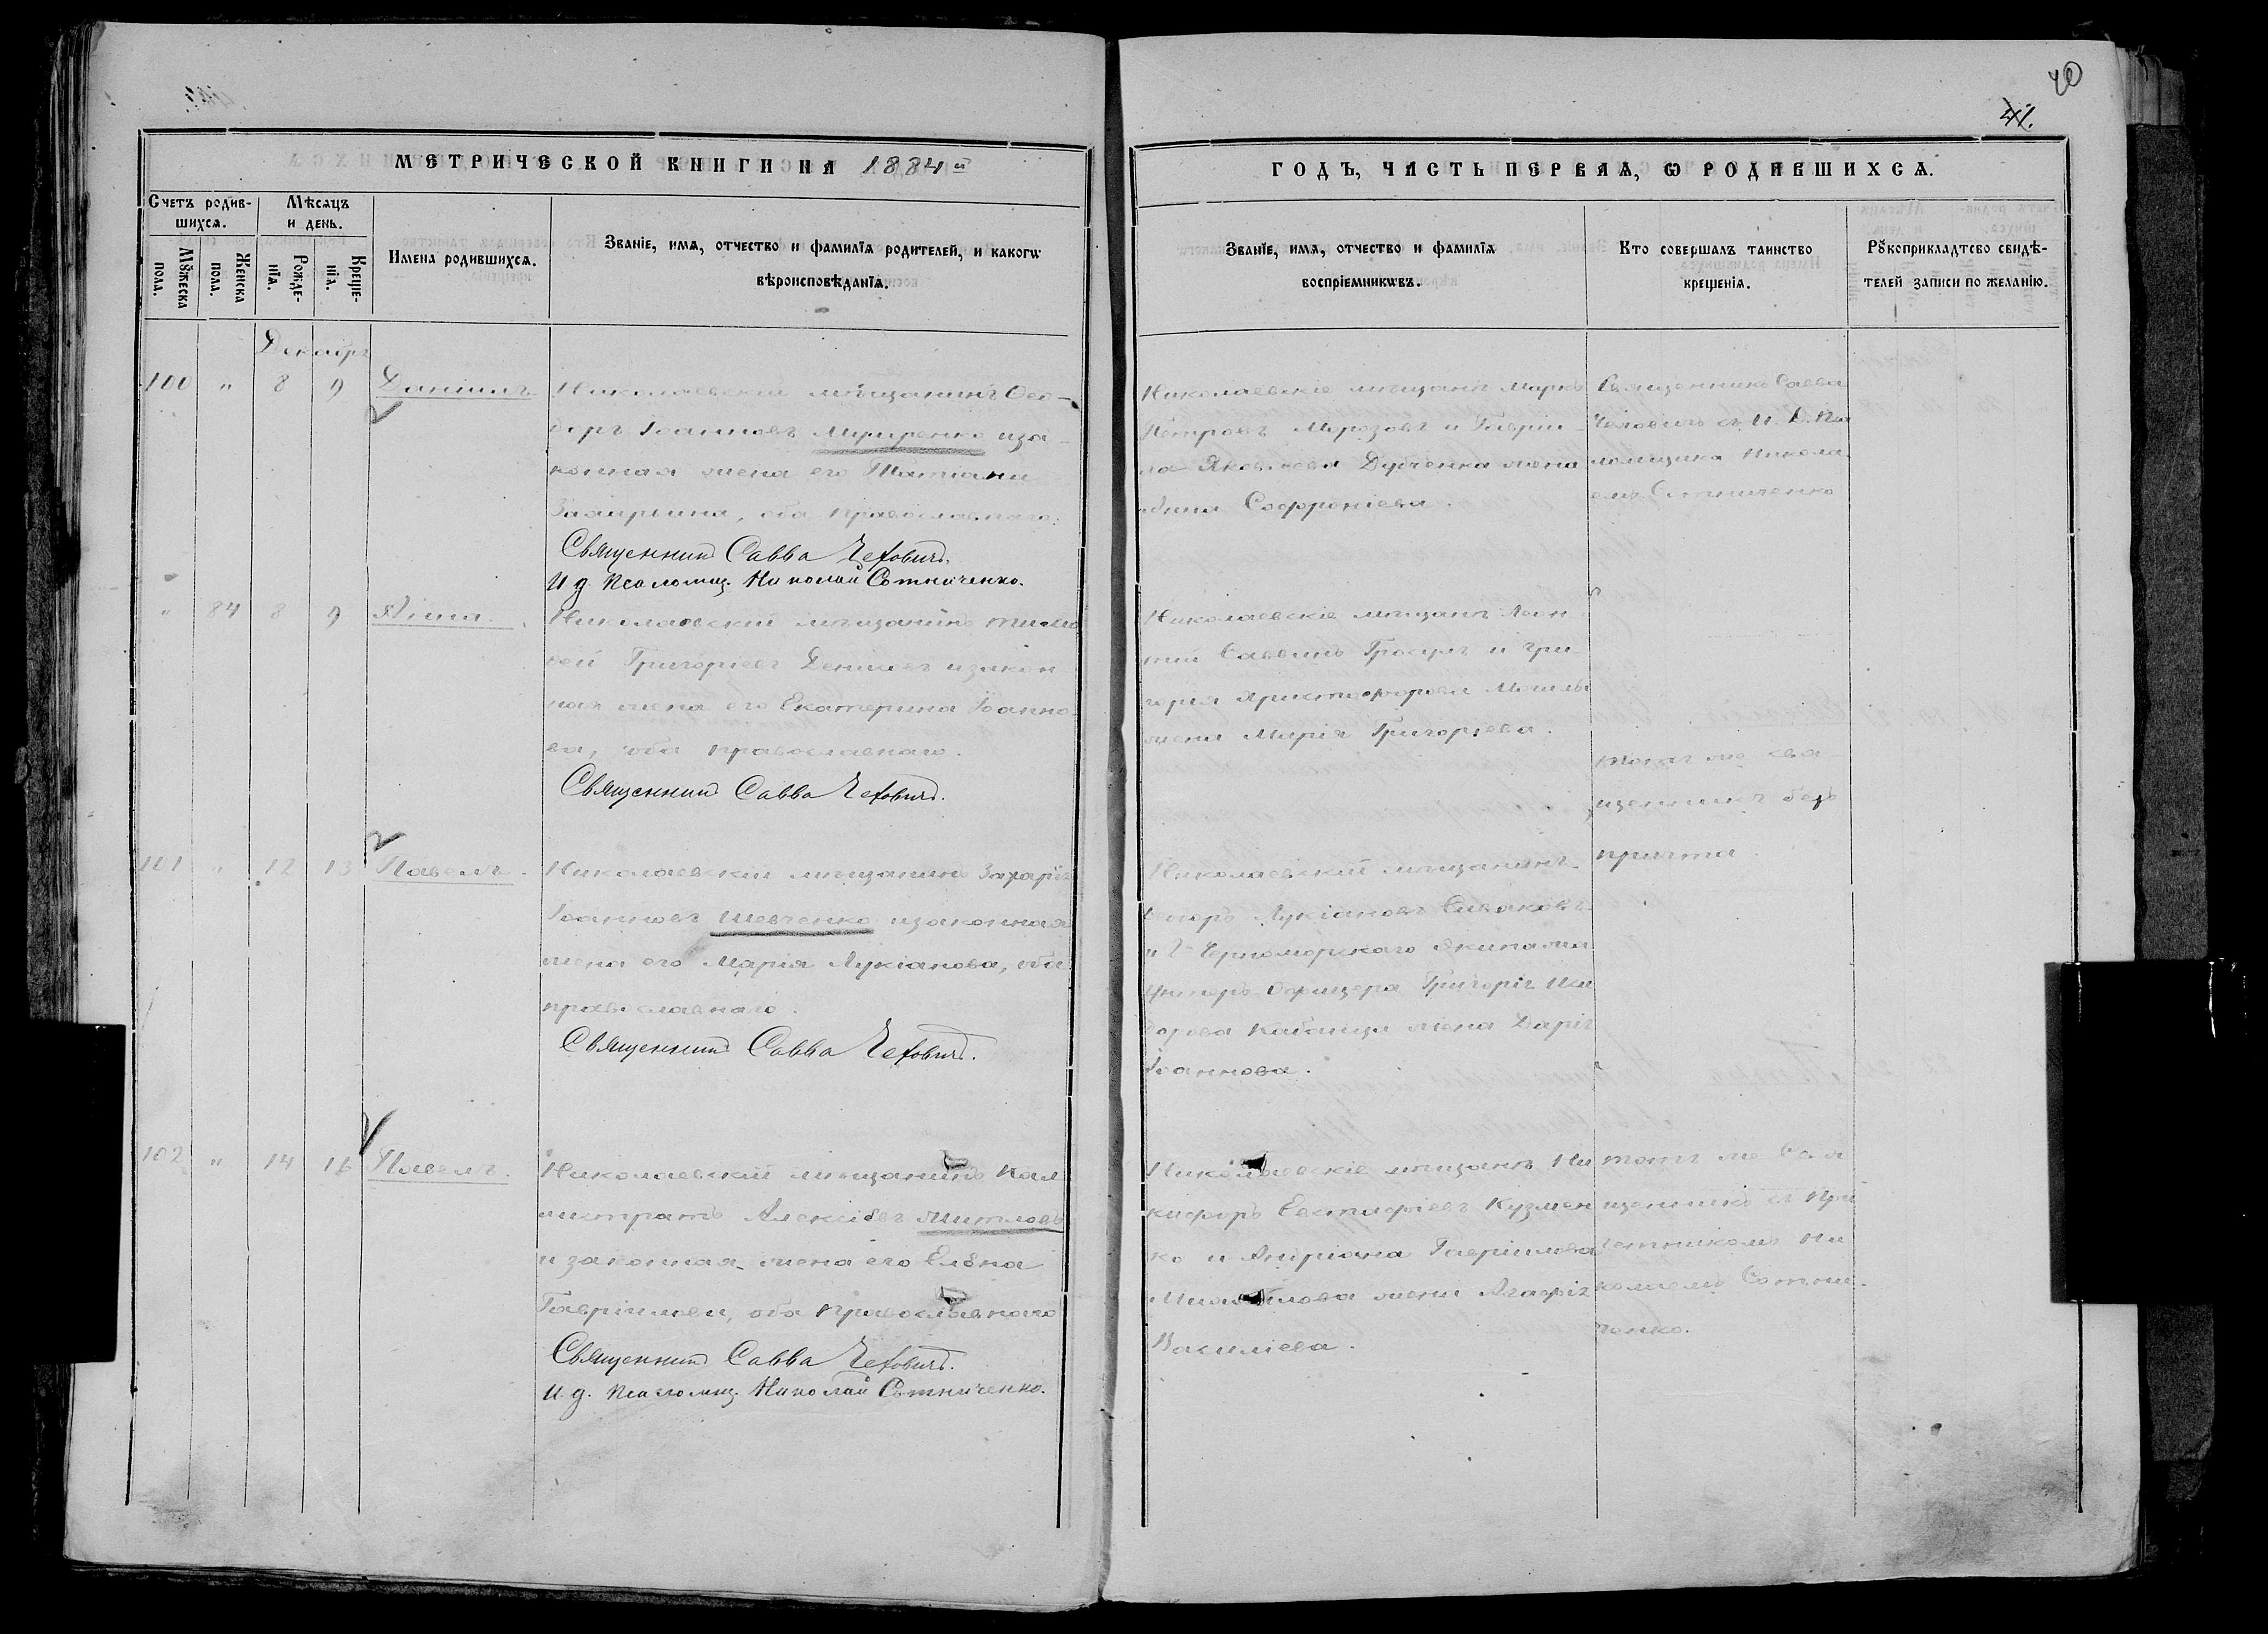 40
41.
МЕТРИЧЕСКОЙ КНИГИ НА 1884 й
ГОДЪ, ЧАСТЬ ПЕРВАЯ, Ѡ РОДИВШИХСЯ.
Счетъ родив-
шихся.
Мѣсяцъ
и день.
Мꙋжеска
пола.
Женска
пола.
Рожде-
нїя.
Креще-
нїя.
Имена родившихся.
Званїе, имя, отчество и фамилїя родителей, и какогѡ
вѣроисповѣданїя.
Званїе, имя, отчество и фамилїя
воспрїемникѡвъ.
Кто совершалъ таинство
крещенїя.
Рꙋкоприкладтсво свидѣ-
телей записи по желанїю.
Декабрь
100 " 8 9 Даніилъ
Николаевскій мѣщанинъ Ѳео-
доръ Іоанновъ иза-
конная жена его Татіана
оба православнаго.
Священникъ Савва Чехович.
И д. Псаломщ. Николай Сотниченко.
Николаевскіе мѣщанинъ Маркъ
Петровъ Морозовъ и Гаврі-
ла Яковлева жена
Софроніева.
Священникъ Савва
Чеховичъ съ И. Д. Пса
ломщика Никола
емъ Сотниченко
" 84 8 9 Анна
Николаевскій мѣщанинъ Тимо
ѳей Григоріевъ изакон
ная жена его Екатерина Іоанно
ва, оба православнаго.
Священникъ Савва Чехович.
Николаевскіе мѣщанъ Леон
тій Саввинъ и Гри
горія Христофорова
жена Марія Григорьева.
тотъ же свя-
щенникъ безъ
причта
101 " 12 13 Павелъ.
Николаевскій мѣщанинъ Захарій
Іоанновъ Шевченко изаконная
жена его Марія Лукіанова, оба
православнаго.
Священникъ Савва Чехович.
Николаевскій мѣщанинъ
Лукіановъ
и 2 Черноморскаго экипажа
Унтеръ Офицера Григорія Иси
дорова жена Дарія
Іоаннова.
102 " 14 16 Павелъ.
Николаевскій мѣщанинъ Кал
листратъ Алексіевъ
и законная жена его Елена
Гавріилова, оба православнаго
Священникъ Савва Чехович.
И. д. Псаломщ. Николай Сотниченко.
Николаевскіе мѣщанъ Ни
кифоръ Евстафіевъ Кузмен
ко и Андріана Гавриилова
жена Агафія
Василіева.
тотъ же Свя
щенникъ съ При
четникомъ Ни
колаемъ Сотни-
ченко.